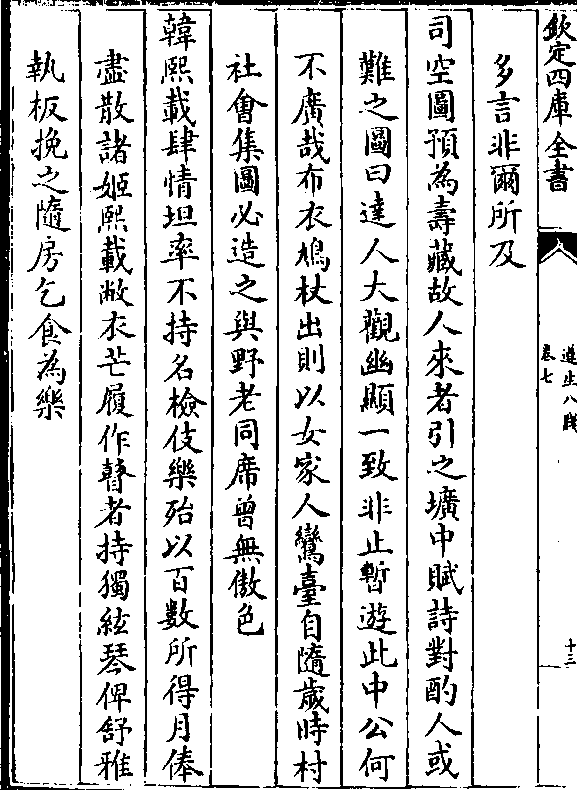 欽定四庫全書
遵生八牋
卷七
十三
多言非爾所及
司空圖預為壽藏故人來者引之壙中賦詩對酌人或
難之圖曰達人大觀幽顯一致非止暫遊此中公何
不廣哉布衣鳩杖出則以女家人鸞臺自隨歲時村
社會集圖必造之與野老同席曾無傲色
韓熙載肆情坦率不持名檢伎樂殆以百數所得月俸
盡散諸姬熙載敝衣芒履作瞽者持獨絃琴俾舒雅
執板挽之隨房乞食為樂